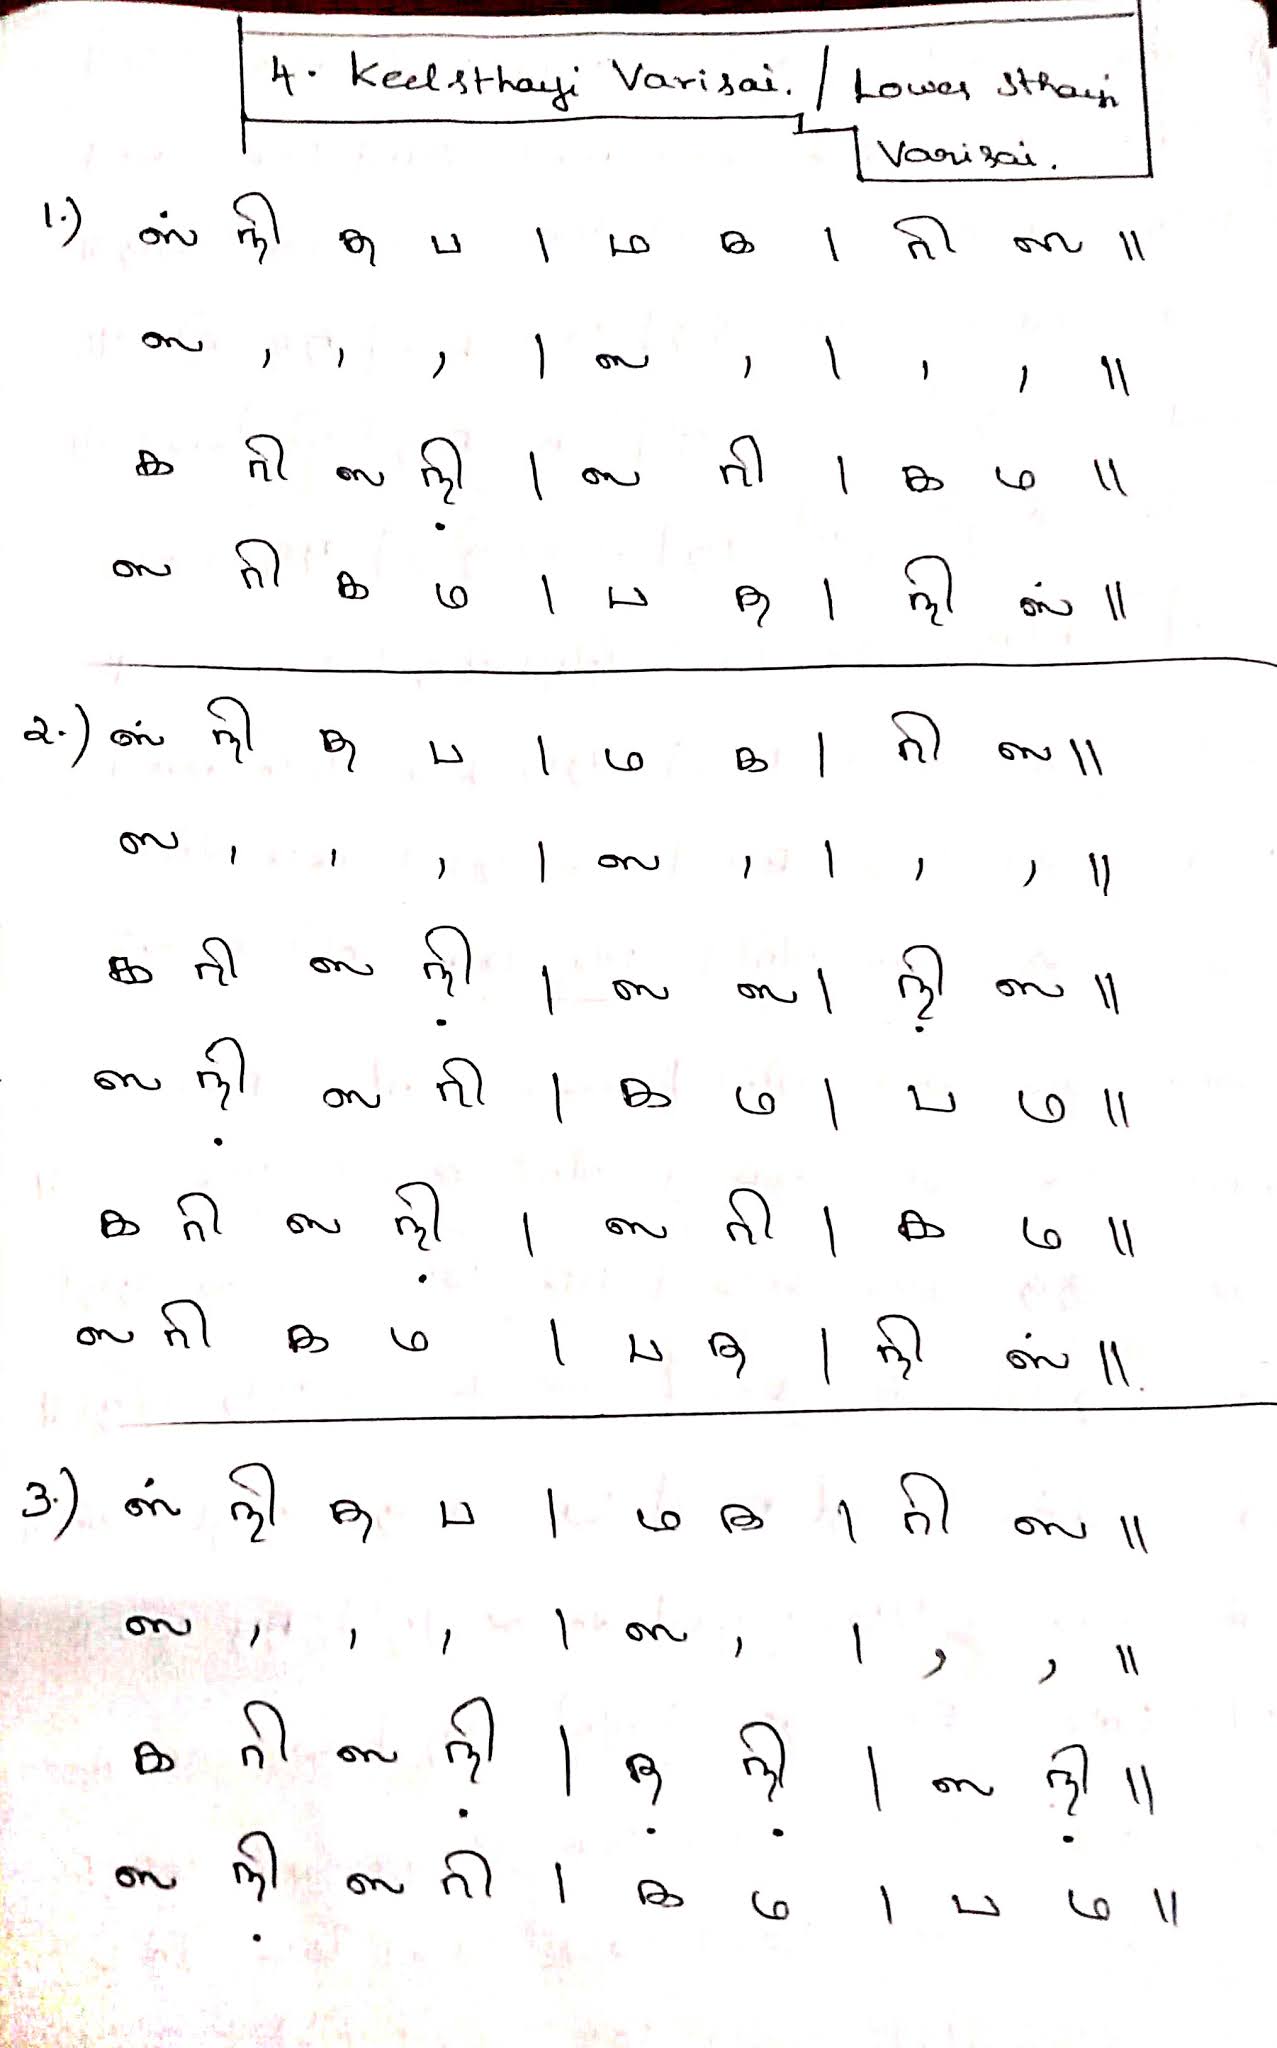 4. Keelsthayi Varisai. / Lower Sthayi
Varisai.
1.) ஸ் நி த ப | ம க | ரி ஸ ||
ஸ , , , | ஸ , | , , ||
க ரி ஸ நி̣ | ஸ ரி | க ம ||
ஸ ரி க ம | ப த | நி ஸ் ||
2.) ஸ் நி த ப | ம க | ரி ஸ ||
ஸ , , , | ஸ , | , , ||
க ரி ஸ நி̣ | ஸ ஸ | நி̣ ஸ ||
ஸ நி̣ ஸ ரி | க ம | ப ம ||
க ரி ஸ நி̣ | ஸ ரி | க ம ||
ஸ ரி க ம | ப த | நி ஸ் ||
3.) ஸ் நி த ப | ம க | ரி ஸ ||
ஸ , , , | ஸ , | , , ||
க ரி ஸ நி̣ | த̣ நி̣ | ஸ நி̣ ||
ஸ நி̣ ஸ ரி | க ம | ப ம ||